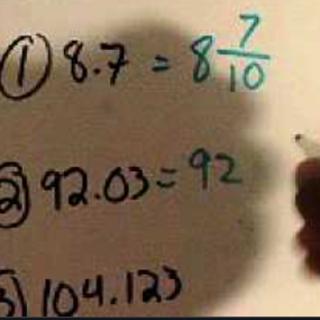 ① 8.7 = 8 7/10
② 92.03 = 92
③ 104.123